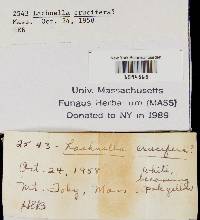 2543 Lachnella crucifera?
Mass. Oct. 24, 1958
HEB
Univ. Massachusetts
Fungus Herbarium (MASS)
Donated to NY in 1989
2543 - Lachnella crucifera?
Oct. 24, 1958 white,
becoming
Mt. Toby, Mass. pale yellow
HEB